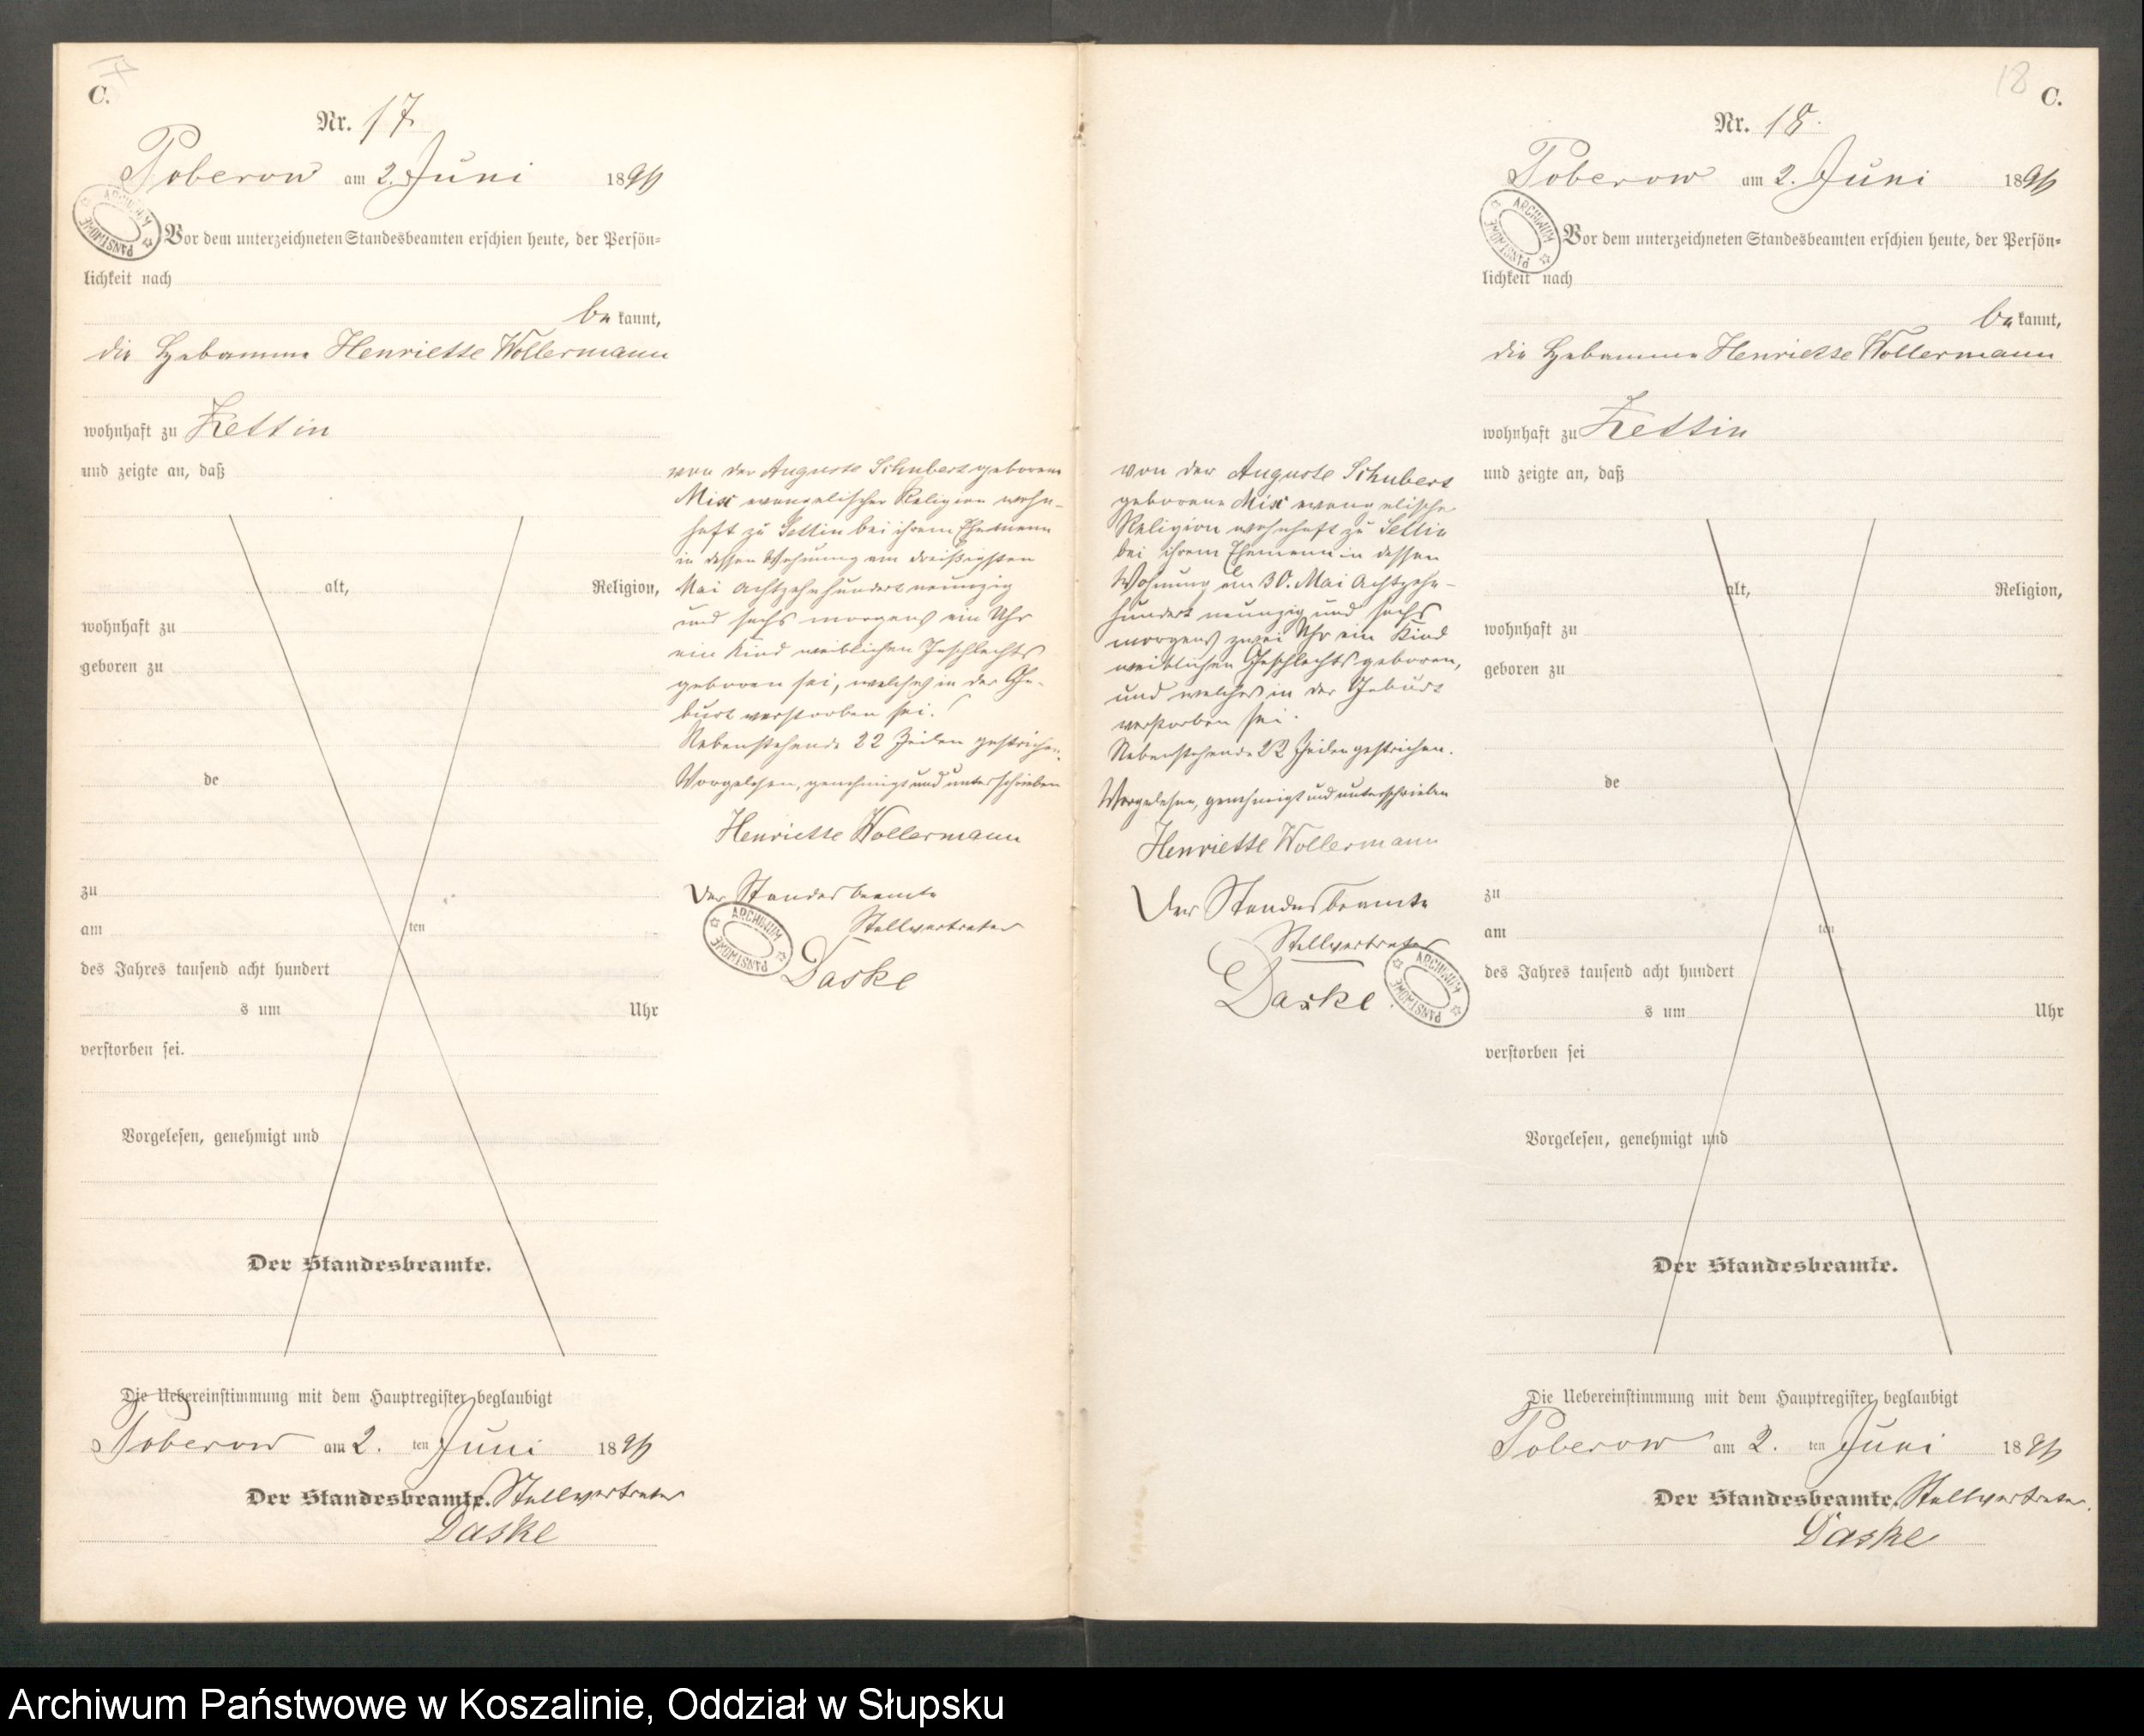 17
C.
Nr. 17
Poberow am 2. Juni 1896
ARCHIWUM PAŃSTWOWE
Vor dem unterzeichneten Standesbeamten erschien heute, der Persön=
lichkeit nach
be kannt,
die Hebamme Henriette Wollermann
wohnhaft zu Zettin
und zeigte an, daß
alt, Religion,
wohnhaft zu
geboren zu
de
zu
am ten
des Jahres tausend acht hundert
s um Uhr
verstorben sei.
Vorgelesen, genehmigt und
Der Standesbeamte.
Die Uebereinstimmung mit dem Hauptregister beglaubigt
Poberow am 2. ten Juni 1896
Der Standesbeamte. Stellvertreter
Daske
von der Auguste Schubert geborene
Mix evangelischer Religion wohn-
haft zu Zettin bei ihrem Ehemann
in dessen Wohnung am dreißigsten
Mai achtzehnhundert neunzig
und sechs morgens ein Uhr
ein Kind weiblichen Geschlechts
geboren sei, welches in der Ge-
burt verstorben sei.
Nebenstehende 22 Zeilen gestrichen.
Vorgelesen, genehmigt und unterschrieben
Henriette Wollermann
Der Standesbeamte
Stellvertreter
ARCHIWUM PAŃSTWOWE
Daske
von der Auguste Schubert
geborene Mix evangelische
Religion wohnhaft zu Zettin
bei ihrem Ehemann in dessen
Wohnung am 30. Mai Achtzehn-
hundert neunzig und sechs
morgens zwei Uhr ein Kind
weiblichen Geschlechts geboren,
und welches in der Geburt
verstorben sei.
Nebenstehende 22 Zeilen gestrichen.
Vorgelesen, genehmigt und unterschrieben
Henriette Wollermann
Der Standesbeamte
Stellvertreter
Daske
ARCHIWUM PAŃSTWOWE
18 C.
Nr. 18.
Poberow am 2. Juni 1896
ARCHIWUM PAŃSTWOWE
Vor dem unterzeichneten Standesbeamten erschien heute, der Persön=
lichkeit nach
be kannt,
die Hebamme Henriette Wollermann
wohnhaft zu Zettin
und zeigte an, daß
alt, Religion,
wohnhaft zu
geboren zu
de
zu
am ten
des Jahres tausend acht hundert
s um Uhr
verstorben sei
Vorgelesen, genehmigt und
Der Standesbeamte.
Die Uebereinstimmung mit dem Hauptregister beglaubigt
Poberow am 2. ten Juni 1896
Der Standesbeamte. Stellvertreter.
Daske
Archiwum Państwowe w Koszalinie, Oddział w Słupsku